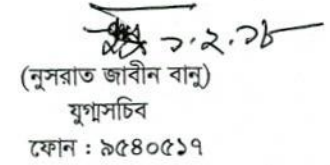 ১.২.১৮
(নুসরাত জাবীন বানু)
যুগ্মসচিব
ফোন : ৯৫৪০৫১৭